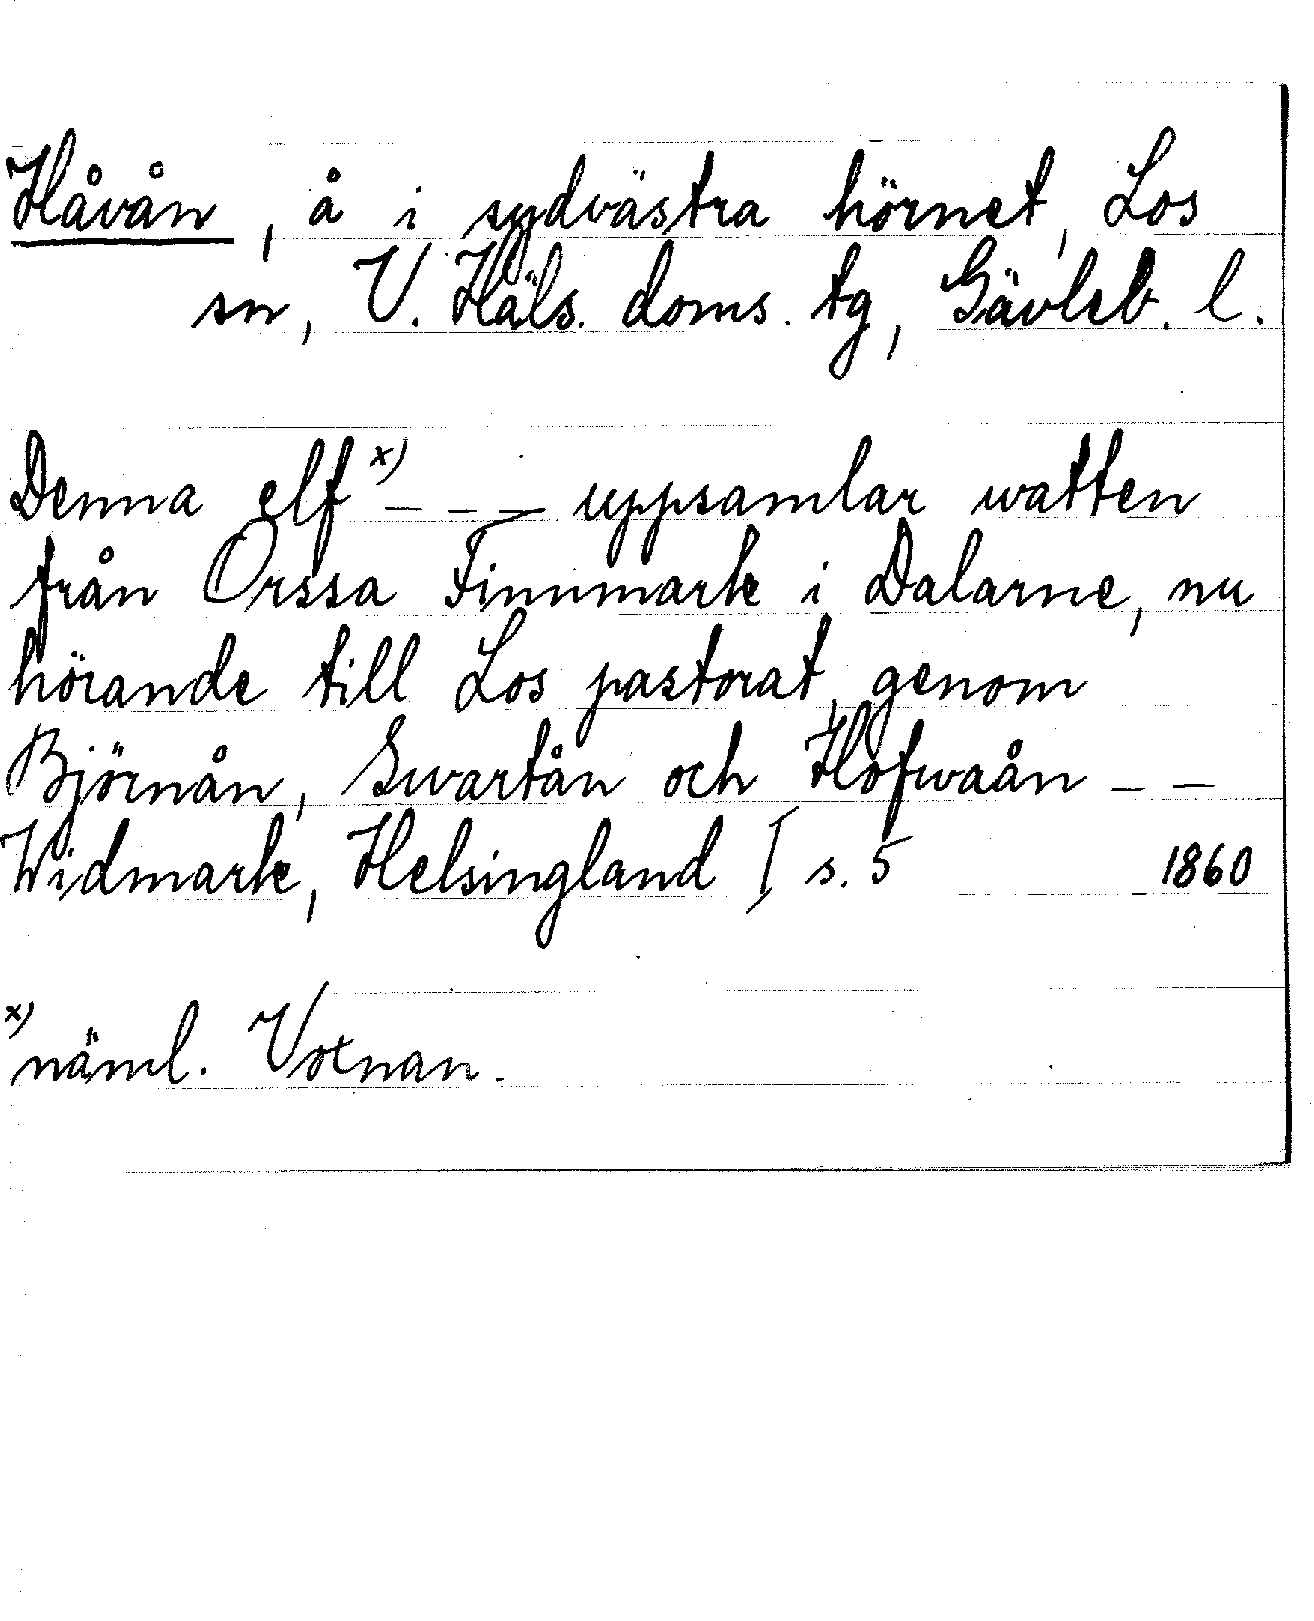 Håvån, å i sydvästra hörnet, Los
sn, V. Häls. doms. tg, Gävleb. l.
Denna elf x) – – – uppsamlar watten
från Orssa Finnmark i Dalarne, nu
hörande till Los pastorat, genom
Björnån, Swartån och Hofwaån – –
Widmark, Helsingland I s. 5 1860
x) näml. Voxnan.